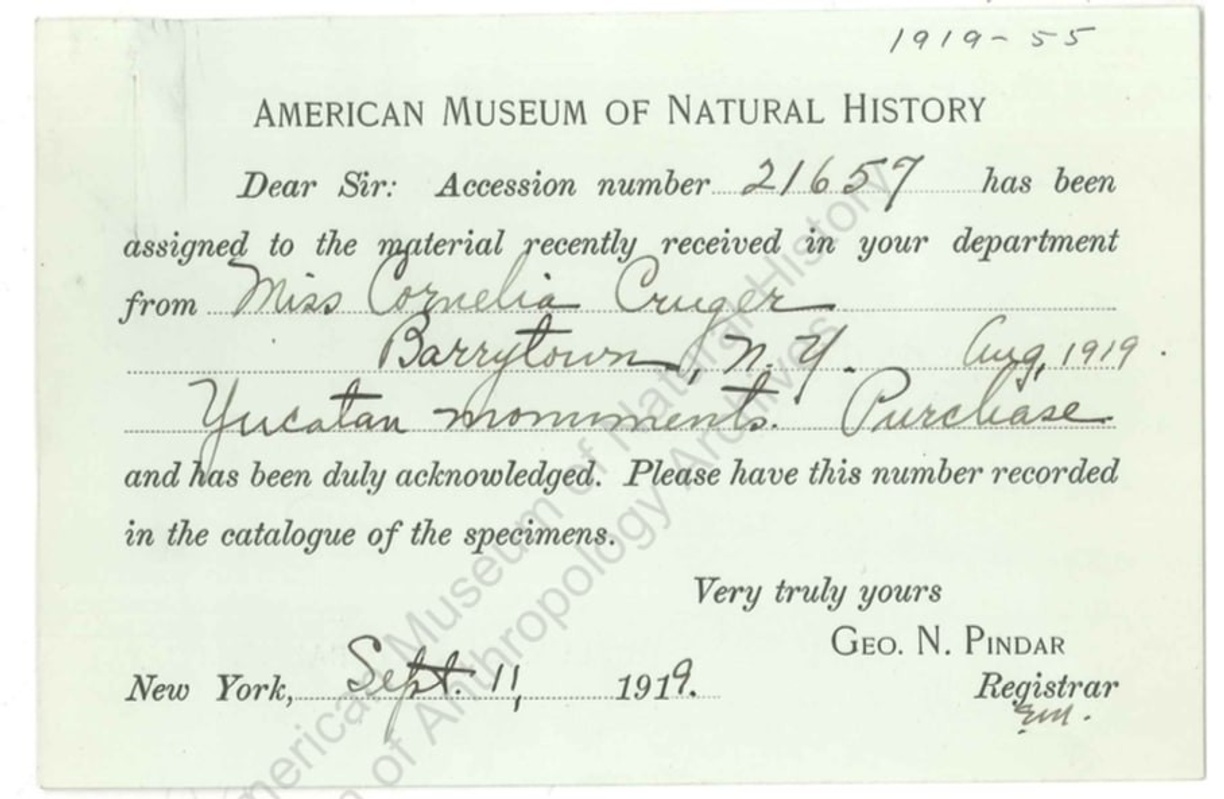 1919-55
AMERICAN MUSEUM OF NATURAL HISTORY
Dear Sir: Accession number 21657 has been
assigned to the material recently received in your department
from Miss Cornelia Cruger
Barrytown, N.Y. Aug, 1919.
Yucatan monuments. Purchase
and has been duly acknowledged. Please have this number recorded
in the catalogue of the specimens.
Very truly yours
GEO. N. PINDAR
New York, Sept. 11, 1919.
Registrar
American Museum of Natural History
of Anthropology Archives